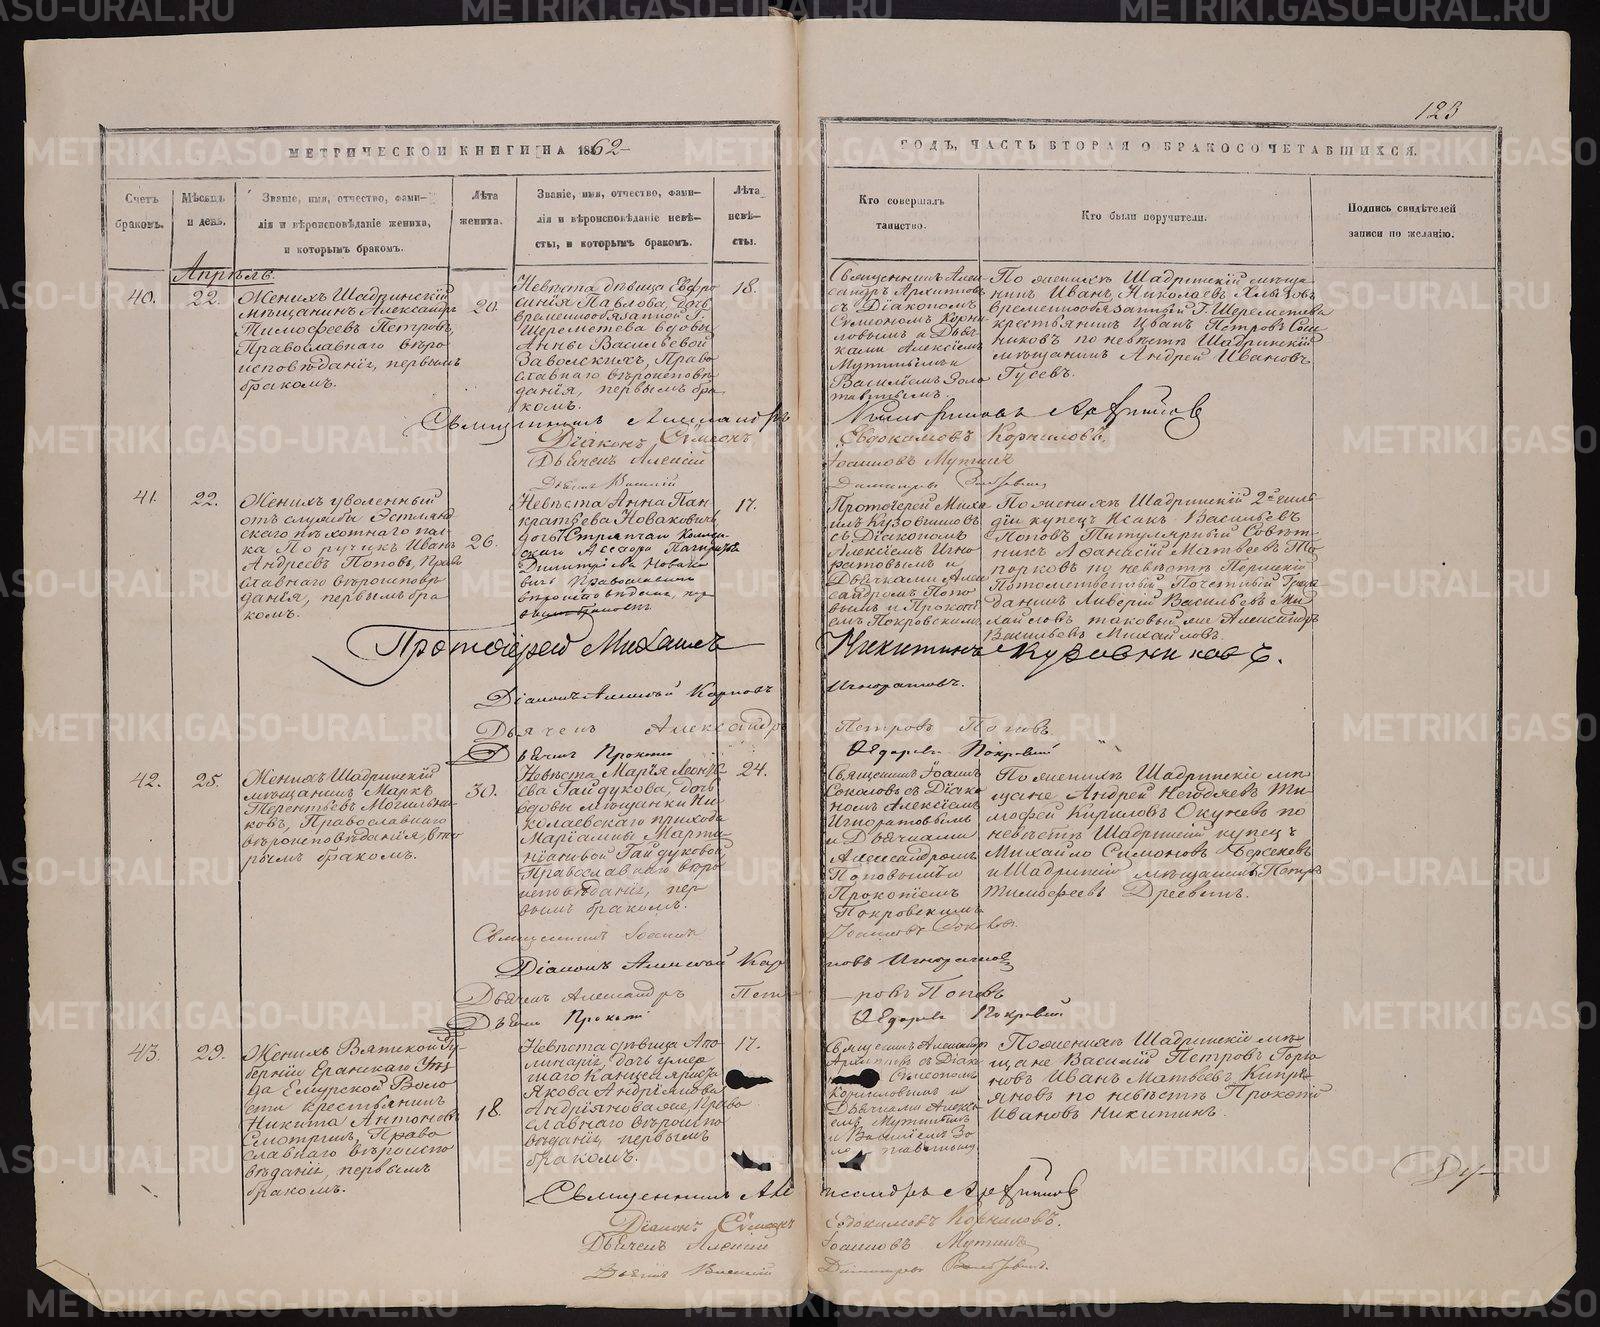 123
МЕТРИЧЕСКОЙ КНИГИ НА 1862
ГОДЪ, ЧАСТЬ ВТОРАЯ О БРАКОСОЧЕТАВШИХСЯ.
Счетъ
браковъ.
Мѣсяцъ
и день.
Званіе, имя, отчество, фами-
лія и вѣроисповѣданіе жениха,
и которымъ бракомъ.
Лѣта
жениха.
Званіе, имя, отчество, фами-
лія и вѣроисповѣданіе невѣ-
сты, и которымъ бракомъ.
Лѣта
невѣ-
сты.
Кто совершалъ
таинство.
Кто были поручители.
Подпись свидѣтелей
записи по желанію.
Апрѣль.
40.
22.
Женихъ Шадринскій
мѣщанинъ Александръ
Тимофеевъ Петровъ,
Православнаго вѣро
исповѣданія, первымъ
бракомъ.
20.
Невѣста дѣвица Евфро
синія Павлова, дочь
временнообязанной Г.
Шереметева вдовы
Анны Васильевой
Заволскихъ, Право
славнаго вѣроисповѣ
данія, первымъ бра
комъ.
18.
Священникъ Алек
сандръ Архиповъ
съ Діакономъ
Симеономъ Корни
ловымъ и Дьяч
ками Алексіемъ
Мутинымъ и
Василіемъ Золо
тавинымъ.
По женихѣ Шадринскій мѣща
нинъ Иванъ Николаевъ
временнообязанный Г. Шереметева
крестьянинъ Иванъ Петровъ
никовъ по невѣстѣ Шадринскій
мѣщанинъ Андрей Ивановъ
Гусевъ.
Священникъ Александръ
Архиповъ
Діаконъ Симеонъ
Евдокимовъ Корниловъ
Дьячекъ Алексій
Іоанновъ Мутинъ
Дьячекъ Василій
41.
22.
Женихъ уволенный
отъ службы Эстлянд
скаго пѣхотнаго пол
ка Поручикъ Иванъ
Андреевъ Поповъ, Прав
славнаго вѣроисповѣ
данія, первымъ бра
комъ.
26.
Невѣста Анна Пан
кратьева Новаковичъ
дочь
17.
Протоіерей Миха
илъ Кузовниковъ
съ Діакономъ
Алексіемъ Игно
ратовымъ и
Дьячками Алек
сандромъ Попо
вымъ и Прокопі
емъ Покровскимъ
По женихѣ Шадринскій 2й гиль
діи купецъ Исакъ Васильевъ
Поповъ Титулярный Совѣт
никъ Афанасій Матвеевъ То
порковъ по невѣстѣ Пермскій
Потомственный Почетный Граж
данинъ Ливерій Васильевъ Ми
хайловъ таковый же Александръ
Васильевъ Михайловъ.
Протоіерей Михаилъ
Никитинъ Кузовниковъ.
Діаконъ Алексѣй Карповъ
Игноратовъ.
Дьячекъ Александръ
Петровъ Поповъ
Дьячекъ Прокопій
Ѳедоровъ Покровскій
42.
25.
Женихъ Шадринскій
мѣщанинъ Марко
Терентьевъ Могильни
ковъ, Православнаго
вѣроисповѣданія, вто
рымъ бракомъ.
30.
Невѣста Марія Леонть
ева Гайдукова, дочь
вдовы мѣщанки Ни
колаевскаго прихода
Маріамны Марти
ніановой Гайдуковой
Православнаго вѣро
исповѣданія, пер
вымъ бракомъ.
24.
Священникъ Іоаннъ
Соколовъ съ Діако
номъ Алексіемъ
Игноратовымъ
и Дьячками
Александромъ
Поповымъ и
Прокопіемъ
Покровскимъ
По женихѣ Шадринскіе мѣ
щане Андрей Негодяевъ Ти
мофей Кириловъ Окуневъ по
невѣстѣ Шадринскій купецъ
Михайло Симоновъ Берсеневъ
и Шадринскій мѣщанинъ Петръ
Тимофеевъ Древинъ.
Священникъ Іоаннъ
Діаконъ Алексѣй Кар
повъ Игноратовъ
Дьячекъ Александръ Пет
ровъ Поповъ
Дьячекъ Прокопій
Ѳедоровъ Покровскій
43.
29.
Женихъ Вятской Гу
берніи Еранскаго Уѣз
да Воло
сти крестьянинъ
Никита Антоновъ
Смотринъ, Право
славнаго вѣроиспо
вѣданія, первымъ
бракомъ.
18.
Невѣста дѣвица Апо
линарія, дочь умер
шаго Канцеляриста
Якова Андріянова
Андріянова же, Право
славнаго вѣроиспо
вѣданія, первымъ
бракомъ.
17.
Священникъ Александръ
Архиповъ съ Діако
Симеономъ
Корниловымъ и
Дьячками Алексі
емъ Мутинымъ
и Василіемъ Зо
По женихѣ Шадринскіе мѣ
щане Василій Петровъ Горш
ковъ Иванъ Матвеевъ Кипрі
яновъ по невѣстѣ Прокопій
Ивановъ Никитинъ.
Священникъ Александръ Архиповъ
Діаконъ Симеонъ
Евдокимовъ Корниловъ.
Дьячекъ Алексій
Іоанновъ Мутинъ
Дьячекъ Василій
METRIKI.GASO-URAL.RU